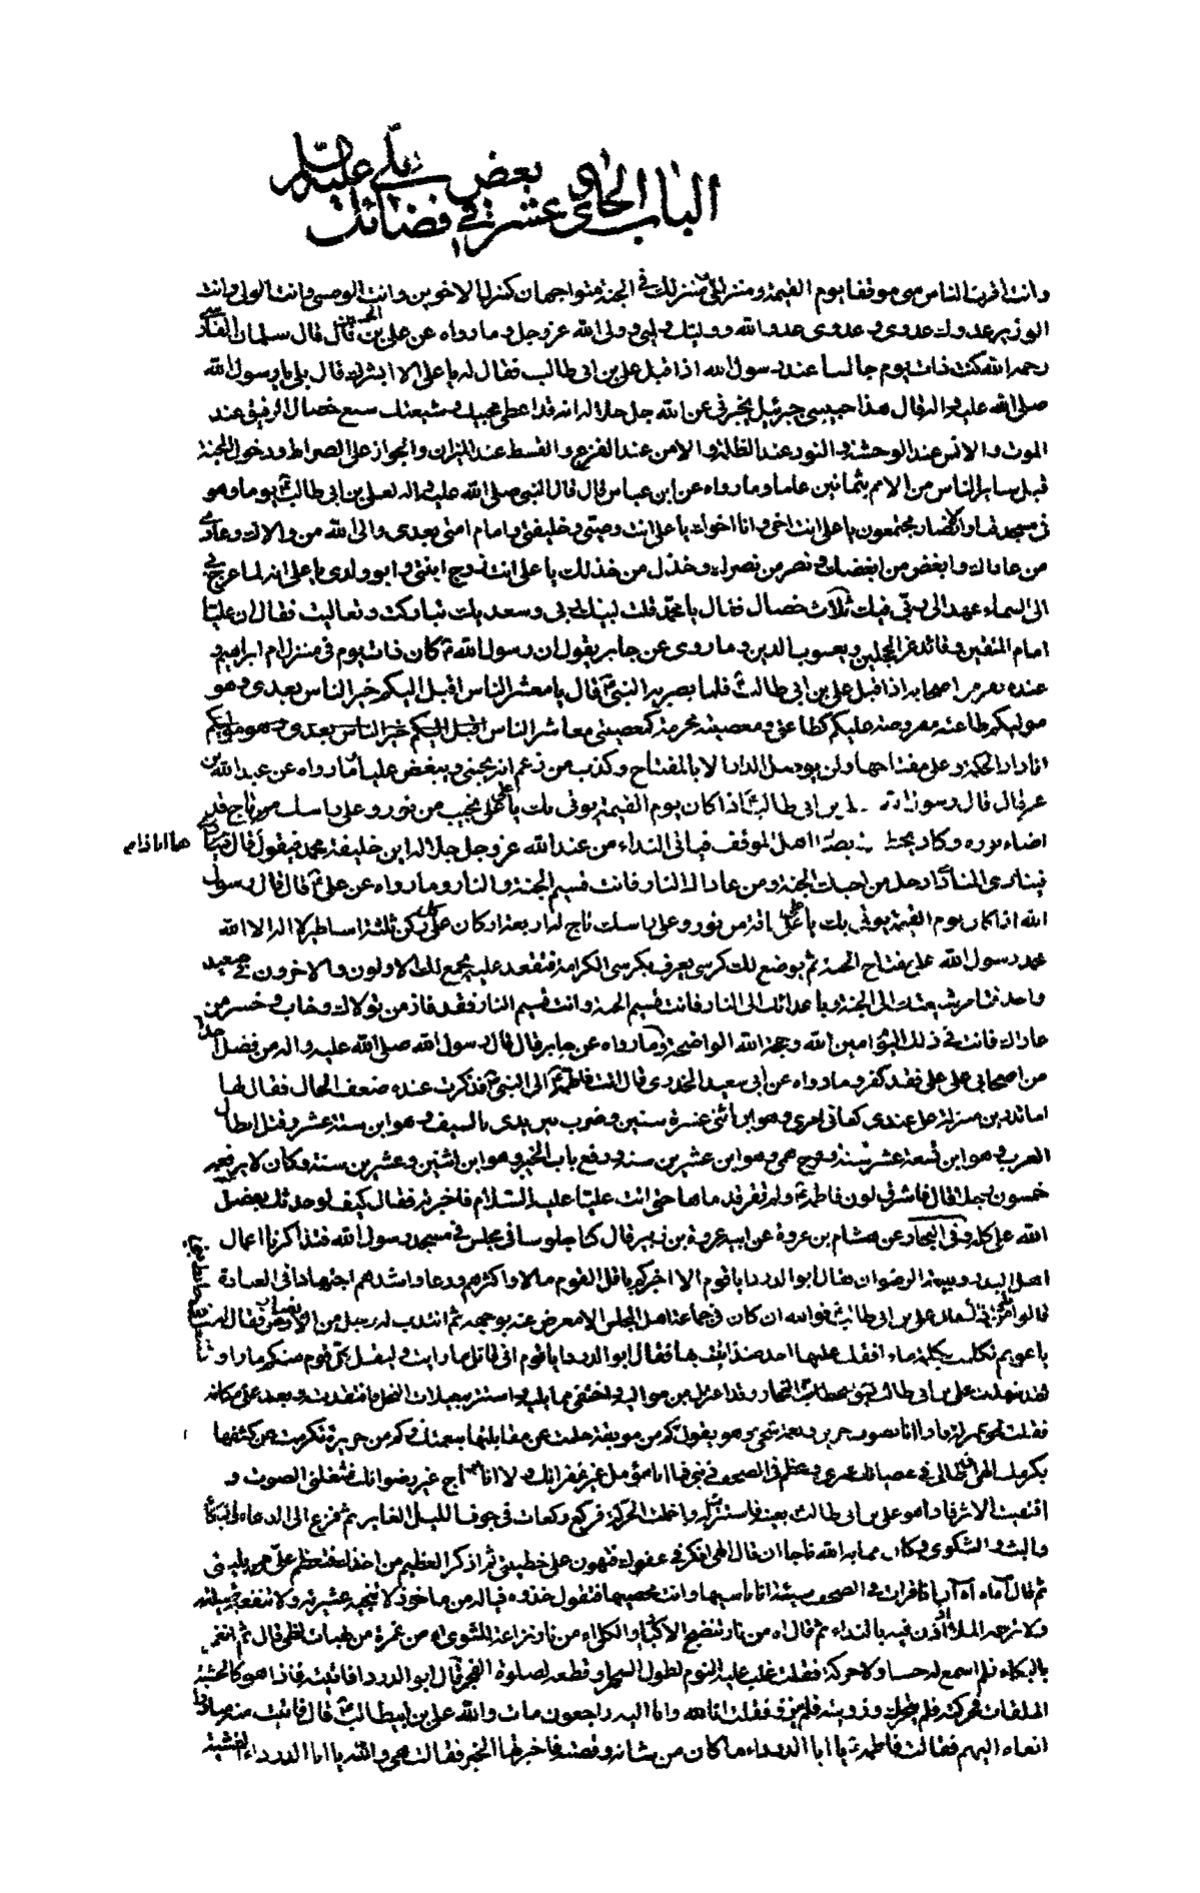 الباب الحادى عشر فى فضائل
بعض على عليه السلم
وانت اقرب الناس منى موقفا يوم القيمة ومنزلى ومنزلك فى الجنة متواجهان كمنزل الاخوين وانت الوصى وانت الولى وانت
الوزير عدوك عدوى وعدوى عدو الله ووليك وليى وولى الله عز وجل وما رواه عن على بن الحسين قال قال سلمان الفارسى
رحمه الله كنت ذات يوم جالسا عند رسول الله اذ اقبل على بن ابى طالب فقال له يا على الا ابشرك قال بلى يا رسول الله
صلى الله عليه واله قال هذا حبيبى جبرئيل يخبرنى عن الله جل جلاله انه قد اعطى محبيك وشيعتك سبع خصال الرفق عند
الموت والانس عند الوحشة والنور عند الظلمة والامن عند الفزع والقسط عند الميزان والجواز على الصراط ودخول الجنة
قبل ساير الناس من الامم بثمانين عاما وما رواه عن ابن عباس قال قال النبى صلى الله عليه واله لعلى بن ابى طالب يوما وهو
فى مسجد قبا والانصار مجتمعون يا على انت اخى وانا اخوك يا على انت وصيى وخليفتى وامام امتى بعدى والى الله من والاك وعادى
من عاداك وابغض من ابغضك ونصر من نصرك وخذل من خذلك يا على انت زوج ابنتى وابو ولدى يا على انه لما عرج بى
الى السماء عهد الى ربى فيك ثلاث خصال فقال يا محمد قلت لبيك ربى وسعديك تباركت وتعاليت فقال ان عليا
امام المتقين وقائد غر المحجلين ويعسوب الدين وما روى عن جابر يقول ان رسول الله كان ذات يوم فى منزل ام ابراهيم
عنده نفر من اصحابه اذ اقبل على بن ابى طالب فلما بصر به النبى قال يا معشر الناس اقبل اليكم خير الناس بعدى وهو
موليكم طاعته مفروضة عليكم كطاعتى ومعصيته محرمة كمعصيتى معاشر الناس اقبل اليكم خير الناس بعدى وهو موليكم
انا دار الحكمة وعلى مفتاحها ولن يوصل الدار الا بالمفتاح وكذب من زعم انه يحبنى ويبغض عليا وما رواه عن عبد الله بن
عمر قال قال رسول الله لعلى بن ابى طالب اذا كان يوم القيمة يؤتى بك يا على على نجيب من نور وعلى راسك تاج قد
اضاء نوره وكاد يخطف بصر اهل الموقف فياتى النداء من عند الله عز وجل جلاله اين خليفة محمد فتقول قال
ها انا ذا
فينادى المنادى ادخل من احبك الجنة ومن عاداك النار فانت قسيم الجنة والنار وما رواه عن على قال قال رسول
الله اذا كان يوم القيمة يؤتى بك يا على على ناقة من نور وعلى راسك تاج له اربعة اركان على كل ركن ثلثة اسطر لا اله الا الله
محمد رسول الله على مفتاح الجنة ثم يوضع لك كرسى يعرف بكرسى الكرامة فتقعد عليه يجمع لك الاولون والاخرون فى صعيد
واحد فتامر بشيعتك الى الجنة وباعدائك الى النار فانت قسيم الجنة وانت قسيم النار فقد فاز من تولاك وخاب وخسر من
عاداك فانت فى ذلك اليوم امين الله وحجة الله الواضحة وما رواه عن جابر قال قال رسول الله صلى الله عليه واله من فضل احدا
من اصحابى على على فقد كفر وما رواه عن ابى سعيد الخدرى قال اتت فاطمة الى النبى فذكرت عنده ضعف الحال فقال لها
اما تدرين منزلة على عندى كفانى امرى وهو ابن اثنى عشرة سنين وضرب بين يدى بالسيف وهو ابن ستة عشر وقتل ابطال
العرب وهو ابن تسعة عشر سنة وفرج همى وهو ابن عشرين سنة ورفع باب الخيبر وهو ابن اثنين وعشرين سنة وكان لا يرفعه
خمسون رجلا قال فاشرق لون فاطمة ولم تقر قدماها حتى اتت عليا عليه السلام فاخبرته فقال كيف لو حدثك بفضل
الله على كله وفى البحار عن هشام بن عروة عن ابيه عروة بن زبير قال كنا جلوسا فى مجلس فى مسجد رسول الله فتذاكرنا اعمال
اهل البدر وبيعة الرضوان فقال ابو الدرداء يا قوم الا اخبركم باقل القوم مالا واكثرهم ورعا واشدهم اجتهادا فى العبادة
قالوا من قال على بن ابى طالب فوالله ان كان فى جماعة اهل المجلس الا معرض عنه بوجهه ثم انتدب له رجل من الانصار فقال له
يا عويمر تكلمت بكلمة ما وافقك عليها احد منذ اتيت بها فقال ابو الدرداء يا قوم انى قائل ما رايت وليقل كل قوم منكم ما راوا
شهدت على بن ابى طالب بشويحطات النجار وقد اعتزل من مواليه واختفى مما يليه واستتر ببعيلات النخل فافتقدته وبعد على مكانه
فقلت لحق بمنزله فاذا انا بصوت حزين ونغمة شجى وهو يقول كم من موبقة حلمت عن مقابلتها بنعمتك وكم من جريرة تكرمت عن كشفها
بكرمك الهى ان طال فى عصيانك عمرى وعظم فى الصحف ذنبى فما انا مؤمل غير غفرانك ولا انا براج غير رضوانك فشغلنى الصوت و
اقتفيت الاثر فاذا هو على بن ابى طالب بعينه فاستترت له واخملت الحركة فركع ركعات فى جوف الليل الغابر ثم فزع الى الدعاء والبكاء
والبث والشكوى فكان مما به الله ناجا ان قال الهى افكر فى عفوك فتهون على خطيئتى ثم اذكر العظيم من اخذك فتعظم على بليتى
ثم قال آه آه ان انا قرات فى الصحف سيئة انا ناسيها وانت محصيها فتقول خذوه فياله من ماخوذ لا تنجيه عشيرته ولا تنفعه قبيلته
ولا يرحمه الملأ اذا اذن فيه بالنداء ثم قال آه من نار تنضج الاكباد والكلى آه من نار نزاعة للشوى آه من غمرة من لهبات لظى قال ثم انغمر
بالبكاء فلم اسمع له حسا ولا حركة فقلت غلب عليه النوم لطول السهر اوقظه لصلوة الفجر قال ابو الدرداء فاتيته فاذا هو كالخشبة
الملقاة فحركته فلم يتحرك وزويته فلم ينزو فقلت انا لله وانا اليه راجعون مات والله على بن ابيطالب قال فاتيت منزله مبادرا
انعاه اليهم فقالت فاطمة يا ابا الدرداء ما كان من شانه وقصته فاخبرتها الخبر فقالت هى والله يا ابا الدرداء الغشية